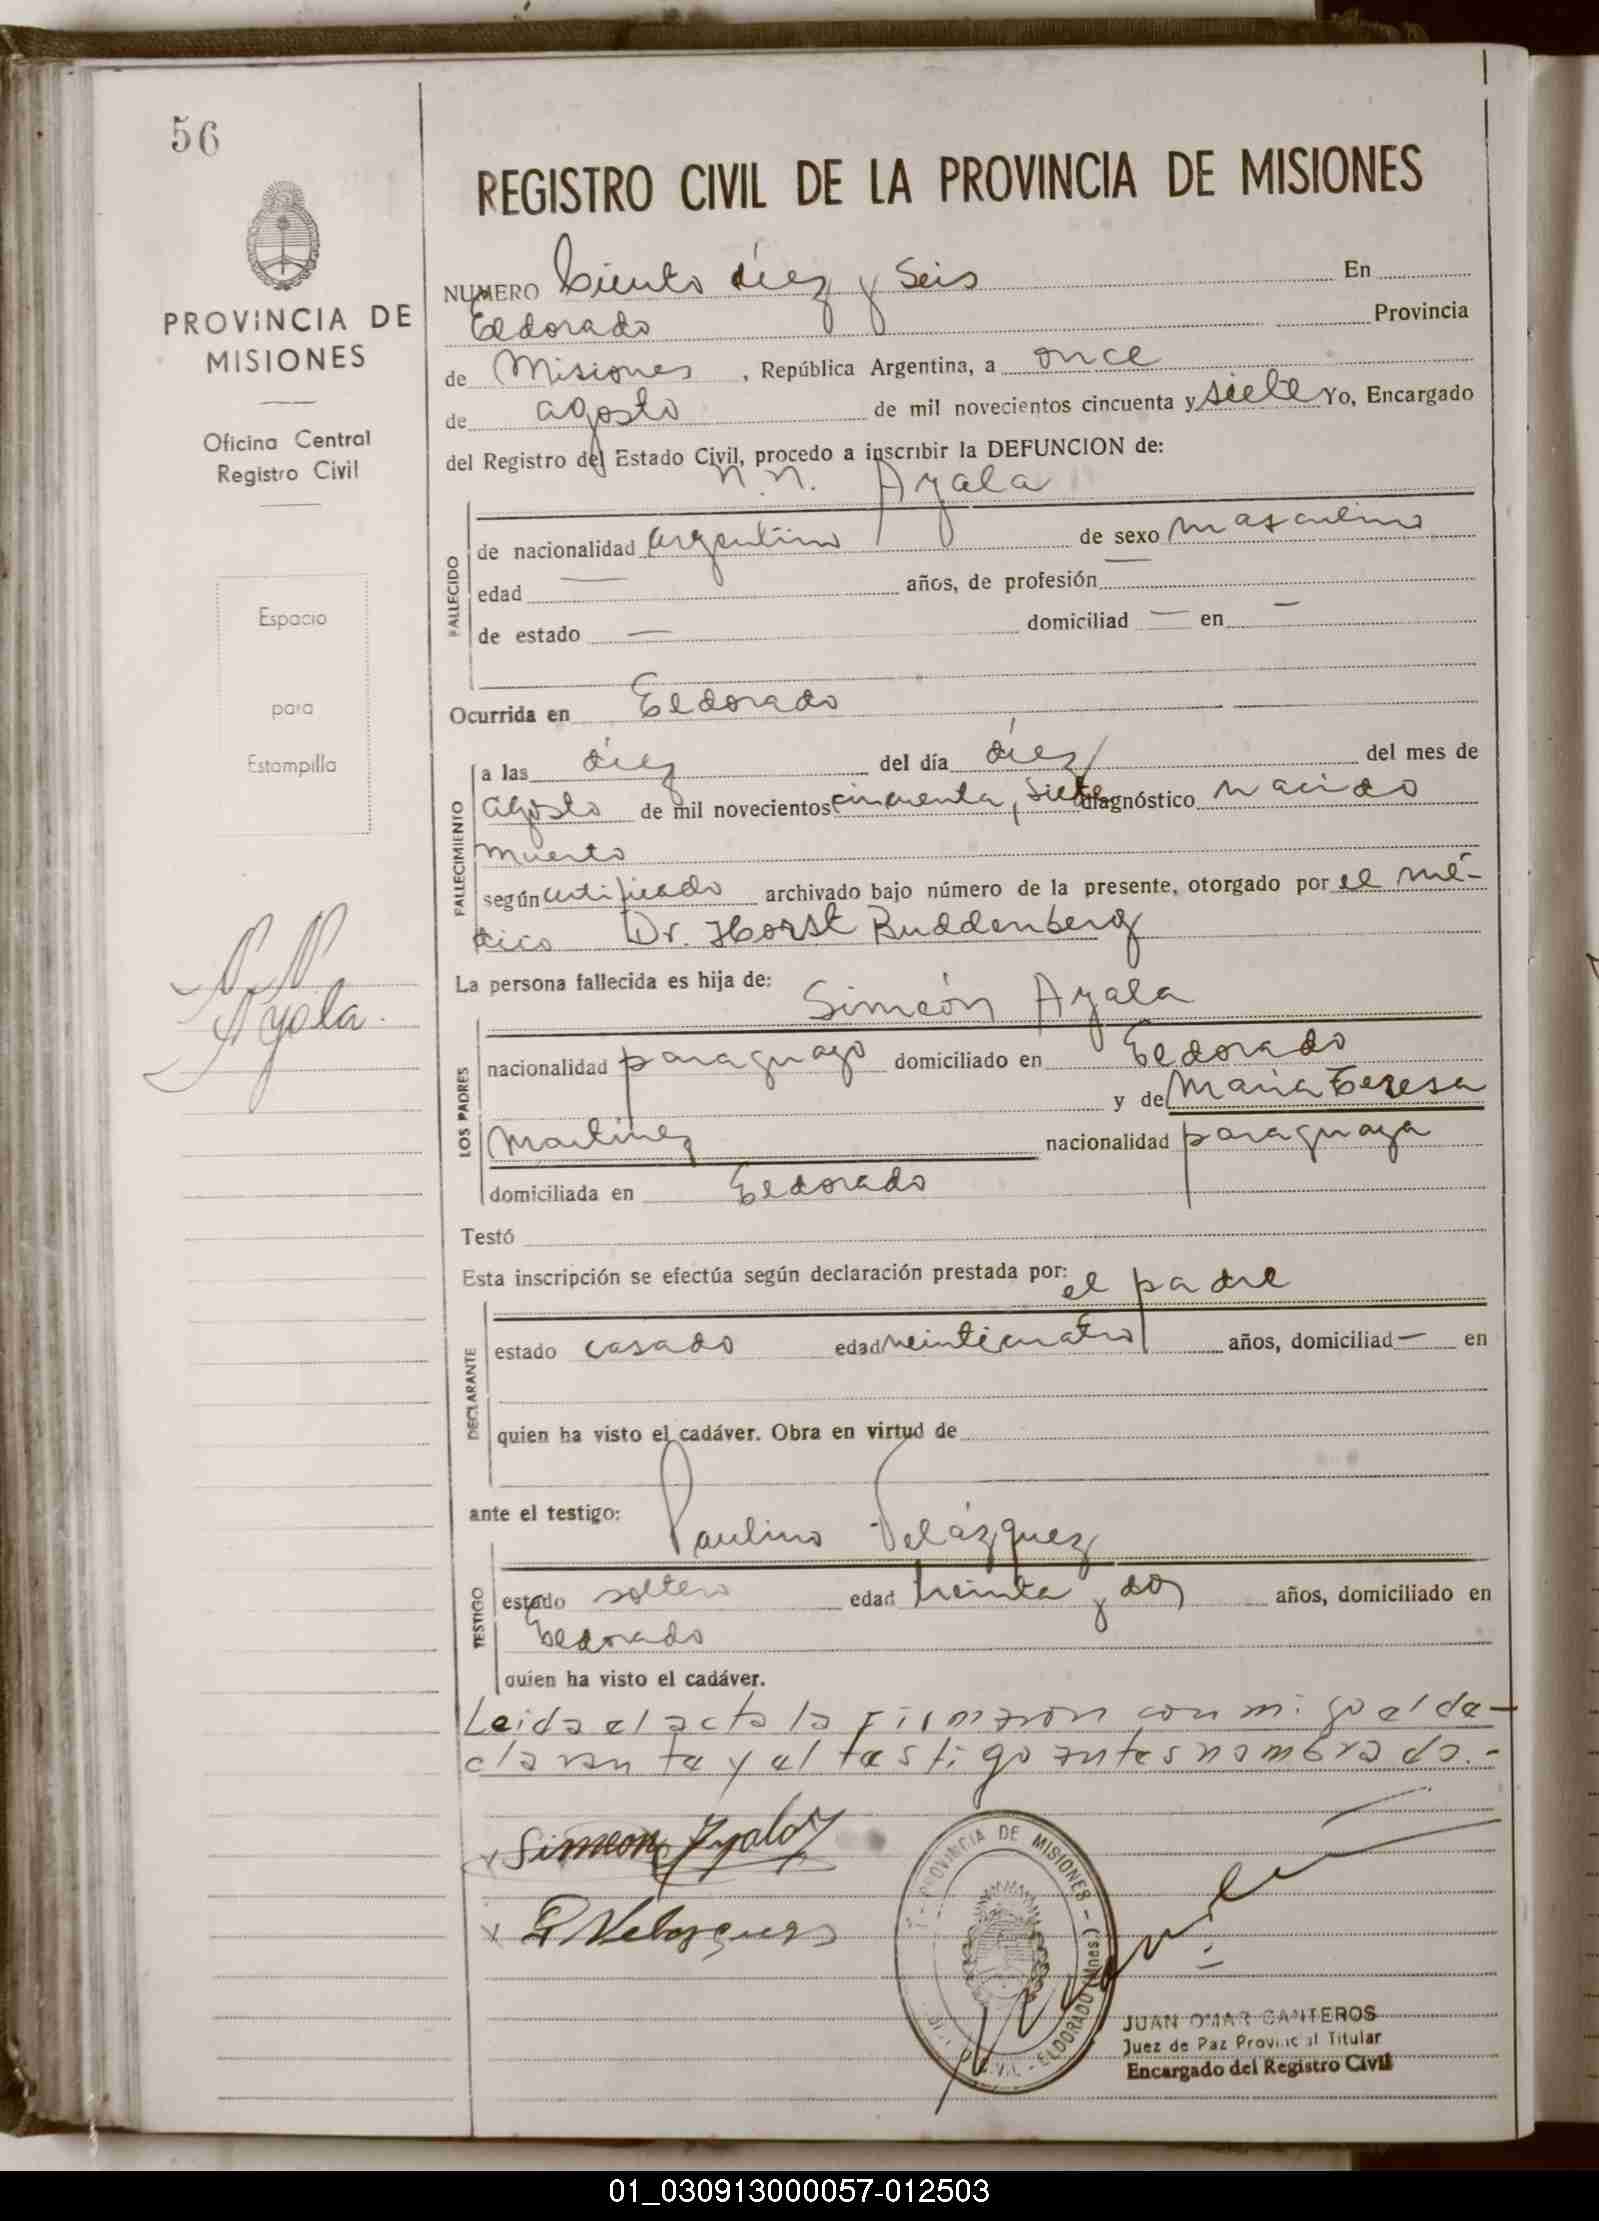 56
PROVINCIA DE
MISIONES
Oficina Central
Registro Civil
Espacio
para
Estampilla
N. N.
Ayala.
REGISTRO CIVIL DE LA PROVINCIA DE MISIONES
NUMERO Ciento diez y seis En
Eldorado Provincia
de Misiones , República Argentina, a once
de agosto de mil novecientos cincuenta y siete Yo, Encargado
del Registro del Estado Civil, procedo a inscribir la DEFUNCION de:
n.n. Ayala
FALLECIDO
de nacionalidad argentino de sexo masculino
edad — años, de profesión —
de estado — domiciliad — en —
Ocurrida en Eldorado
FALLECIMIENTO
a las diez del día diez del mes de
agosto de mil novecientos cincuenta, siete diagnóstico nacido
muerto
según certificado archivado bajo número de la presente, otorgado por el mé-
dico Dr. Horst Buddenberg
La persona fallecida es hija de: Simeón Ayala
LOS PADRES
nacionalidad paraguayo domiciliado en Eldorado
y de María Teresa
Martínez nacionalidad paraguaya
domiciliada en Eldorado
Testó
Esta inscripción se efectúa según declaración prestada por: el padre
DECLARANTE
estado casado edad veinticuatro años, domiciliad — en
quien ha visto el cadáver. Obra en virtud de
ante el testigo: Paulino Velázquez
TESTIGO
estado soltero edad treinta y dos años, domiciliado en
Eldorado
quien ha visto el cadáver.
Leida el acta la firmaron conmigo el de-
clarante y el testigo antes nombrado.-
x Simeon Ayala
x P Velasquez
PROVINCIA DE MISIONES - ELDORADO (Mnes.)
JUAN OMAR CANTEROS
Juez de Paz Provincial Titular
Encargado del Registro Civil
01_030913000057-012503